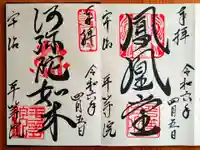 奉拝
鳳凰堂
令和六年
四月五日
宇治 平等院
奉拝
阿弥陀如来
令和六年
四月五日
宇治 平等院